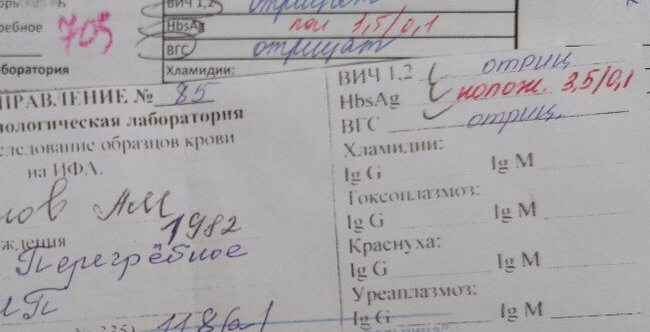 ВИЧ 1,2 отрицат
HbsAg пол 3,5/0,1
ВГС отрицат
Хламидии:
705
ребное
аборатория
ПРАВЛЕНИЕ № 85
ологическая лаборатория
следование образцов крови
на ИФА.
нов АМ
1982
ждения
Перегрёбное
ВИЧ 1.2 отриц
HbsAg полож. 3,5/0,1
ВГС отриц.
Хламидии:
Ig G Ig M
Токсоплазмоз:
Ig G Ig M
Краснуха:
Ig G Ig M
Уреаплазмоз:
Ig G Ig M